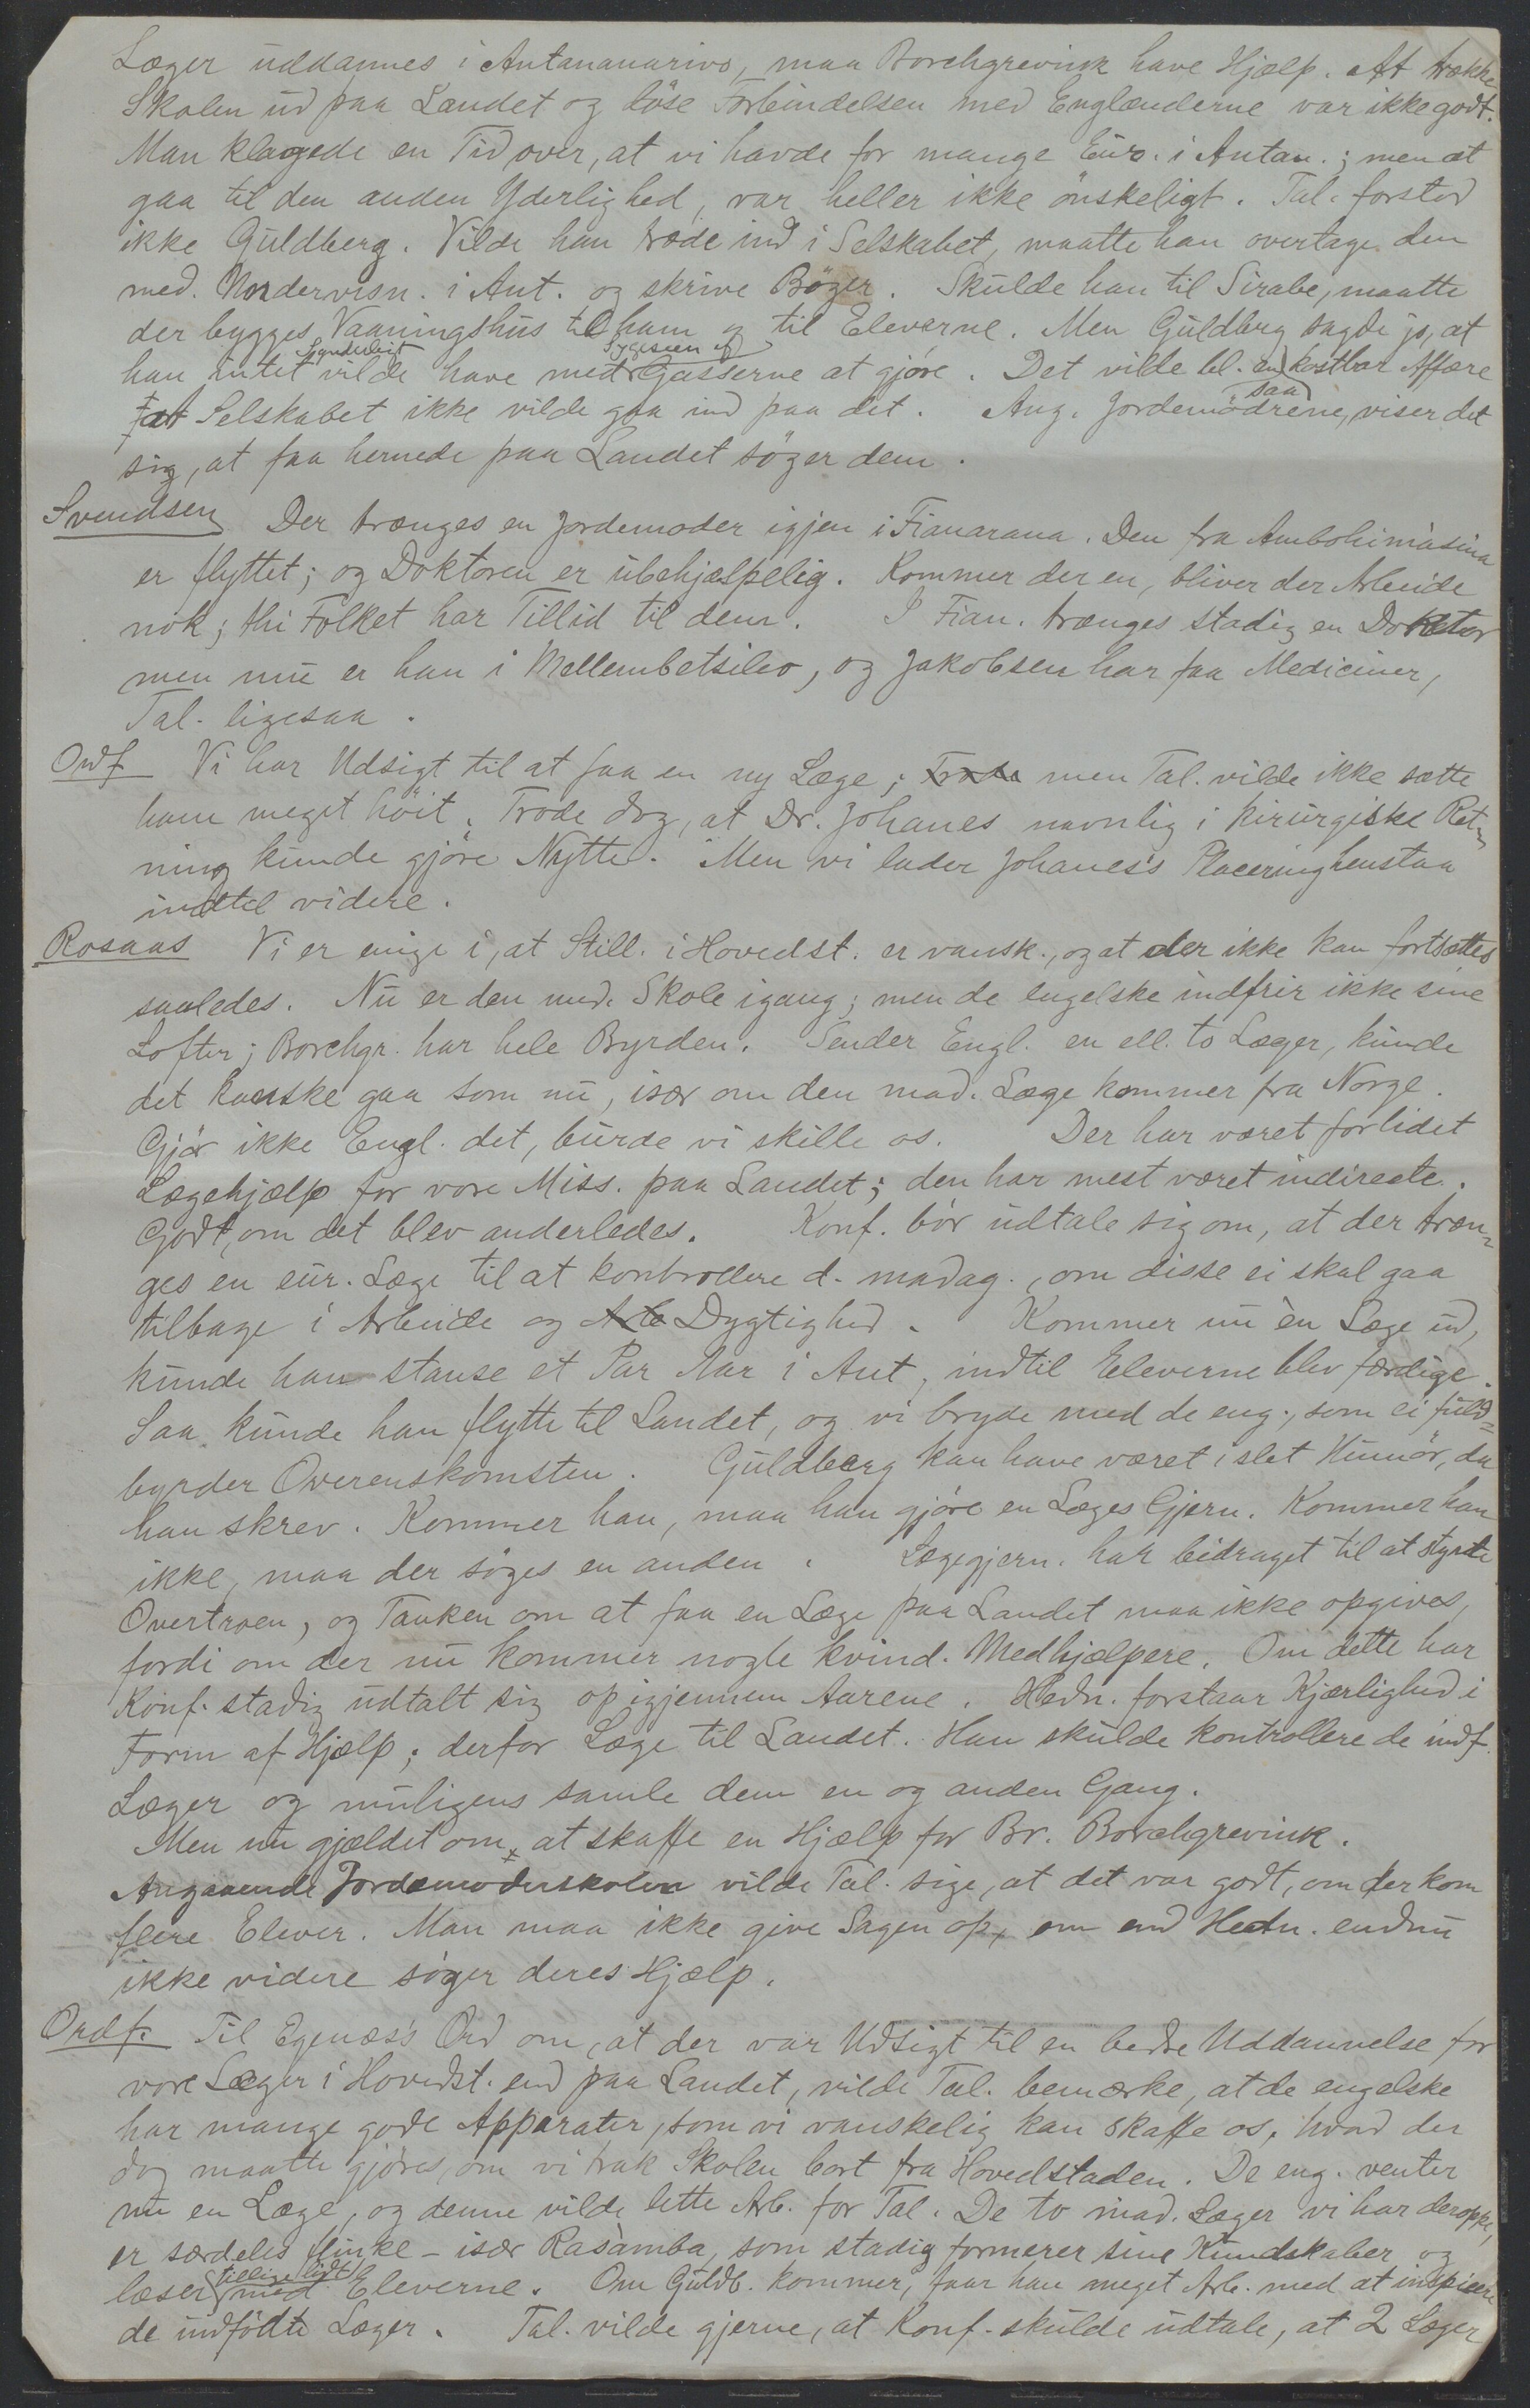 Læger uddannes i Antananarivo, maa Borchgrevink have Hjælp. At trække
Skolen ud paa Landet og löse Forbindelsen med Englænderne var ikke godt.
Man klagede en Tid over, at vi havde for mange Eur. i Antan.; men at
gaa til den anden Yderlighed, var heller ikke önskeligt. Tal. forstod
ikke Guldberg. Vilde han træde ind i Selskabet, maatte han overtage den
med. Undervisn. i Ant. og skrive Bøger. Skulde han til Sirabe, maatte
der bygges Vaaningshus til ham og til Eleverne. Men Guldberg sagde jo, at
han intet synderligt vilde have med Sygesen af Gasserne at gjøre. Det vilde bl. en kostbar Affære
at Selskabet ikke vilde gaa ind paa det. Ang. Jordemödrene, saa viser det
sig, at faa hernede paa Landet søger dem.
Svendsen Der trænges en Jordemoder igjen i Fianarana. Den fra Ambohimasina
er flyttet; og Doktoren er übehjælpelig. Kommer der en, bliver der Arbeide
nok; thi Folket har Tillid til dem. I Fian. trænges stadig en Doktor
men nu er han i Mellembetsileo, og Jakobsen har faa Mediciner,
Tal. ligesaa.
Ordf Vi har Udsigt til at faa en ny Læge; Trode men Tal. vilde ikke sætte
ham meget höit. Trode dog, at Dr. Johanes navnlig i kirurgiske Ret-
ning kunde gjøre Nytte. Men vi lader Johanes's Placering henstaa
indtil videre.
Rosaas Vi er enige i, at Still. i Hovedst. er vansk., og at der ikke kan fortsættes
saaledes. Nu er den med. Skole igang; men de engelske indfrir ikke sine
Løfter; Borchgr. har hele Byrden. Sender Engl. en ell. to Læger, kunde
det kanske gaa som nu, især om den mad. Læge kommer fra Norge.
Gjør ikke Engl. det, burde vi skille os. Der har været for lidet
Lægehjælp for vore Miss. paa Landet; den har mest været indirecte.
Godt, om det blev anderledes. Konf. bör udtale sig om, at der træn-
ges en eur. Læge til at kontrollere d. madag., om disse ei skal gaa
tilbage i Arbeide og Arb Dygtighed. Kommer nu èn Læge ud,
kunde han stanse et Par Aar i Ant, indtil Eleverne blev færdige.
Saa kunde han flytte til Landet, og vi bryde med de eng., som ei fuld=
byrder Overenskomsten. Guldberg kan have været i slet Humör, da
han skrev. Kommer han, maa han gjöre en Læges Gjern. Kommer han
ikke, maa der søges en anden. Lægegjern. har bidraget til at styrte
Overtroen, og Tanken om at faa en Læge paa Landet maa ikke opgives,
fordi om der nu kommer nogle kvind. Medhjælpere. Om dette har
Konf. stadig udtalt sig op igjennem Aarene. Hedn. forstaar Kjærlighed i
Form af Hjælp; derfor Læge til Landet. Han skulde kontrollere de indf.
Læger og muligens samle dem en og anden Gang.
Men nu gjældet om, at skaffe en Hjælp for Br. Borchgrevink.
Angaaende Jordemoderskolen vilde Tal. sige, at det var godt, om der kom
flere Elever. Man maa ikke give Sagen op, om end Hedn. endnu
ikke videre søger deres Hjælp.
Ordf. Til Egenæs's Ord om, at der var Udsigt til en bedre Uddannelse for
vore Læger i Hovedst. end paa Landet, vilde Tal. bemærke, at de engelske
har mange gode Apparater, som vi vanskelig kan skaffe os, hvad der
dog maatte gjøres, om vi trak Skolen bort fra Hovedstaden. De eng. venter
nu en Læge, og denne vilde lette Arb. for Tal. De to mad. Læger vi har deroppe,
er særdeles flinke - især Rasàmba, som stadig formerer sine Kundskaber og
læser tillige lidt med Eleverne. Om Guldb. kommer, faar han meget Arb. med at inspicere
de indfödte Læger. Tal. vilde gjerne, at Konf. skulde udtale, at 2 Læger